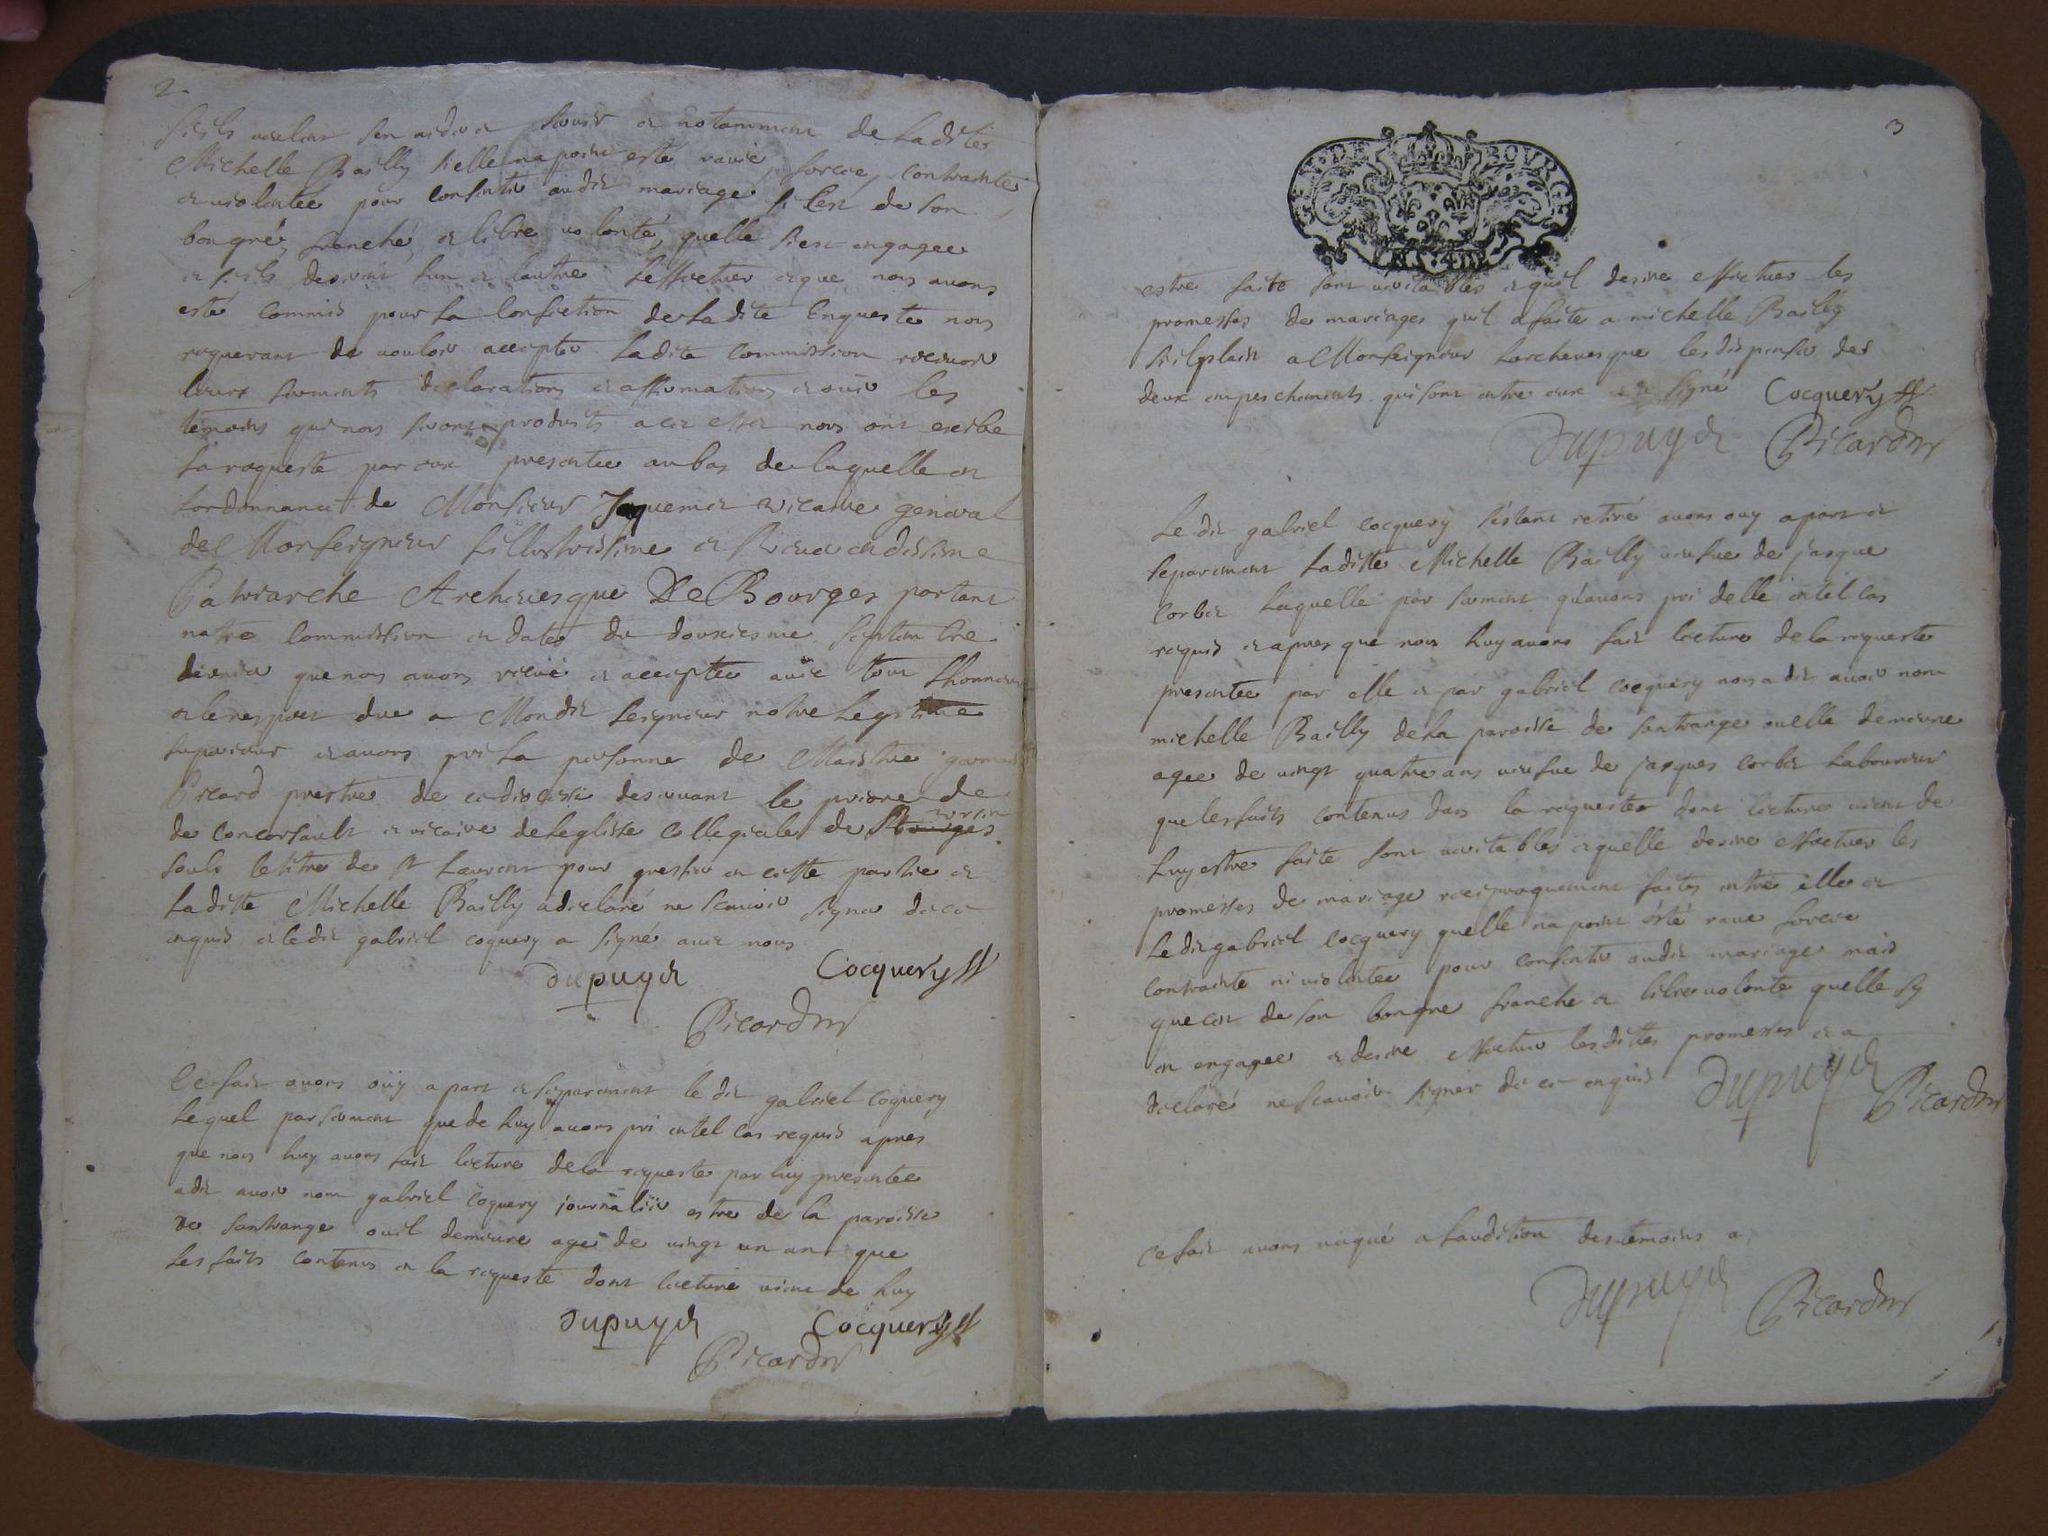 2
sicils veulent sen aider et servir et notamment de ladite
Michelle Bailly si elle na point esté ravie, forcée, contrainte
et violentée pour consentir audit mariage si cest de son
bongré, franche, et libre volonté, quelle sest engagee
et sils desirent lun et lautre leffectuer et que nous avons
esté commis pour la confection de ladite Enqueste nous
requerant de vouloir accepter ladite commission recevoir
leurs serments declarations et affirmations et ouir les
témoins qui nous seront produits a cet effet nous ont exibé
la requeste par eux presentee au bas de laquelle est
lordonnance de Monsieur Jaquemet vicaire general
de Monseigneur Lillustrissime et Reverendissime
Patriarche Archevesque De Bourges portant
notre commission en datte du douxiesme septembre
dernier que nous avons receüe et acceptee avec tout lhonneur
et le respect due a Mondit seigneur notre legitime
superieur et avons pris la personne de Maistre germain
Picard prestre de ce diocese desservant le prioré de
de Concorsault et vicaire de leglise collegiale de St ursin Bourges
soubs le titre de St Laurent pour greffier en cette partie et
laditte Michelle Bailly a declaré ne scavoir signer de ce
enquis et ledit gabriel coquery a signé avec nous
Dupuyet Cocquery
Picard
Ce fait avons oüy a part et separement le dit gabriel Coquery
Lequel par serment que de luy avons pri en tel cas requis apres
que nous luy avons fait lecture de la requeste par luy presentee
a dit avoir nom gabriel coquery journalier estre de la paroisse
de santrange ou il demeure agé de vingt un ans que
les faits contenus en la requeste dont lecture vient de luy
Dupuyet Cocquery
Picard
3
GEN. DE BOURGES
estre faite sont veritables et quil desire effectuer les
promesses de mariages quil a faite a michelle Bailly
sil plait a Monseigneur Larchevesque les dispenser des
deux empeschements qui sont entre eux et a signé Cocquery
Dupuyet Picard
Le dit gabriel cocquery sestant retiré avons ouy a part et
separement laditte Michelle Bailly veufve de jasque
corbet laquelle par serment quavons pri delle en tel cas
requis et apres que nous luy avons fait lecture de la requeste
presentee par elle et par gabriel cocquery nous a dit avoir nom
michelle Bailly de la paroisse de santrange ou elle demeure
agee de vingt quatre ans veufve de jasques corbet laboureur
que les faits contenus dans la requeste dont lecture vient de
luy estre faite sont veritables et quelle desire effectuer les
promesses de mariage reciproquement faites entre elle et
Ledit gabriel cocquery quelle na point ésté ravie forcée
contrainte ni violentee pour consentir audit mariage mais
que cest de son bongre franche et libre volonté quelle sy
est engagee et desire effectuer lesdittes promesses et a
declaré ne scavoir signer de ce enquis Dupuyet Picard
Ce fait avons vaqué a laudition des témoins a
Dupuyet Picard